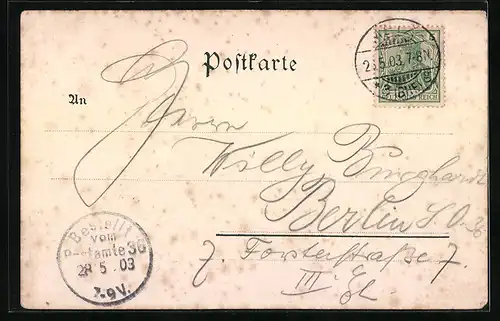 Postkarte
An
Herrn
Willy Burghardt
Berlin S.O. 36
7. Forsterstraße 7.
III
Bestellt
vom
Postamte 36
28 5 03
7-9V.
5.03. 7-8N
REICH